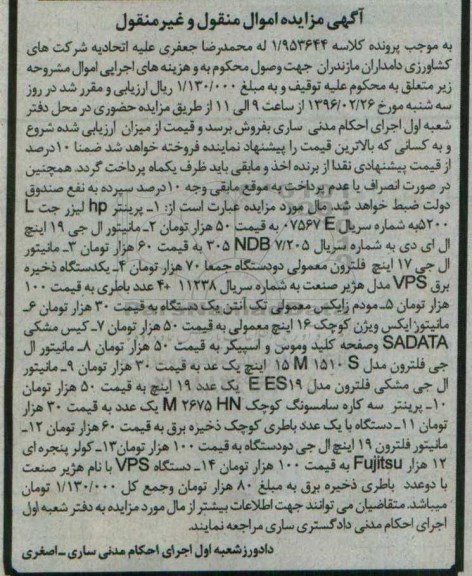 آگهی مزایده اموال منقول و غیر منقول
به موجب پرونده کلاسه ۱/۹۵۳۶۴۴ له محمدرضا جعفری علیه اتحادیه شرکت های
کشاورزی دامداران مازندران جهت وصول محکوم به و هزینه های اجرایی اموال مشروحه
زیر متعلق به محکوم علیه توقیف و به مبلغ ۱/۱۳۰/۰۰۰ ریال ارزیابی و مقرر شد در روز
سه شنبه مورخ ۱۳۹۶/۰۲/۲۶ از ساعت ۹ الی ۱۱ از طریق مزایده حضوری در محل دفتر
شعبه اول اجرای احکام مدنی ساری بفروش برسد و قیمت از میزان ارزیابی شده شروع و
به کسانی که بالاترین قیمت را پیشنهاد نماینده فروخته خواهد شد ضمنا ۱۰درصد
از قیمت پیشنهادی نقدا از برنده اخذ و مابقی باید ظرف یکماه پرداخت گردد. همچنین
در صورت انصراف یا عدم پرداخت به موقع مابقی وجه ۱۰درصد سپرده به نفع صندوق
دولت ضبط خواهد شد. مال مورد مزایده عبارت است از: ۱_ پرینتر hp لیزر جت L
۵۲۰۰به شماره سریال ۰۷۵۶۷E به قیمت ۵۰ هزار تومان ۲_ مانیتور ال جی ۱۹ اینچ
ال ای دی به شماره سریال ۳۰۵ NDB ۷/۲۰۵ به قیمت ۶۰ هزار تومان ۳_ مانیتور
ال جی ۱۷ اینچ فلترون معمولی دودستگاه جمعا ۷۰ هزار تومان ۴_ یکدستگاه ذخیره
برق VPS مدل هژیر صنعت به شماره سریال ۱۱۲۳۸ ۴۰ عدد باطری به قیمت ۱۰۰
هزار تومان ۵_ مودم زایکس معمولی تک آنتن یک دستگاه به قیمت ۳۰ هزار تومان ۶_
مانیتور ایکس ویژن کوچک ۱۶ اینچ معمولی به قیمت ۵۰ هزار تومان ۷_ کیس مشکی
SADATA وصفحه کلید وموس و اسپیکر به قیمت ۵۰ هزار تومان ۸_ مانیتور ال
جی فلترون مدل ۱۵ M ۱۵۱۰ S اینچ یک عد به قیمت ۳۰ هزار تومان ۹_ مانیتور
ال جی مشکی فلترون مدل E ES۱۹ یک عدد ۱۹ اینچ به قیمت ۵۰ هزار تومان
۱۰_ پرینتر سه کاره سامسونگ کوچک M ۲۶۷۵ HN یک عدد به قیمت ۳۰ هزار
تومان ۱۱_ دستگاه با یک عدد باطری کوچک ذخیره برق به قیمت ۶۰ هزار تومان ۱۲_
مانیتور فلترون ۱۹ اینچ ال جی دودستگاه به قیمت ۱۰۰ هزار تومان۱۳_ کولر پنجره ای
۱۲ هزار Fujitsu به قیمت ۱۰۰ هزار تومان ۱۴_ دستگاه VPS با نام هژیر صنعت
با دوعدد باطری ذخیره برق به مبلغ ۸۰ هزار تومان وجمع کل ۱/۱۳۰/۰۰۰ تومان
میباشد. متقاضیان می توانند جهت اطلاعات بیشتر از مال مورد مزایده به دفتر شعبه اول
اجرای احکام مدنی دادگستری ساری مراجعه نمایند.
دادورز شعبه اول اجرای احکام مدنی ساری _ اصغری